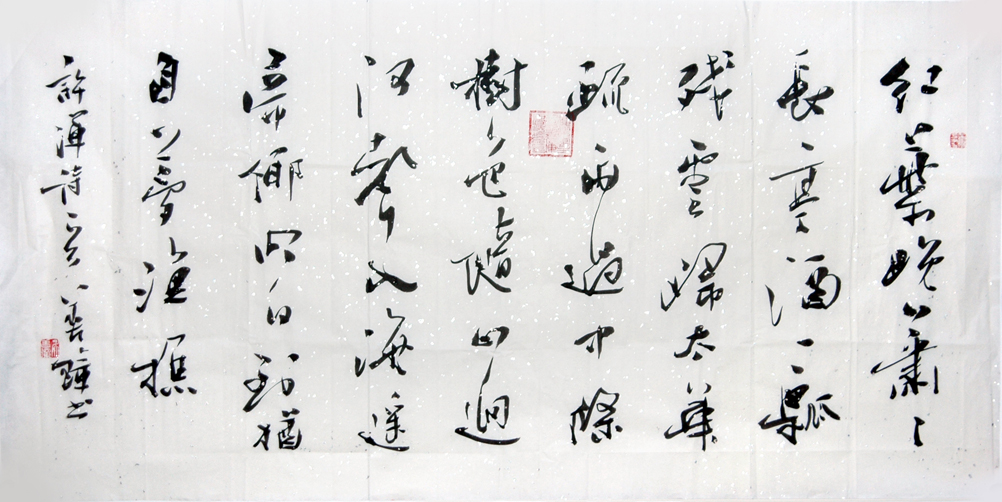 紅葉晚蕭々
長亭酒一瓢
殘雲歸太華
疏雨過中條
樹色隨山迥
河聲入海遥
帝鄉明日到猶
自夢漁樵
許渾詩 書